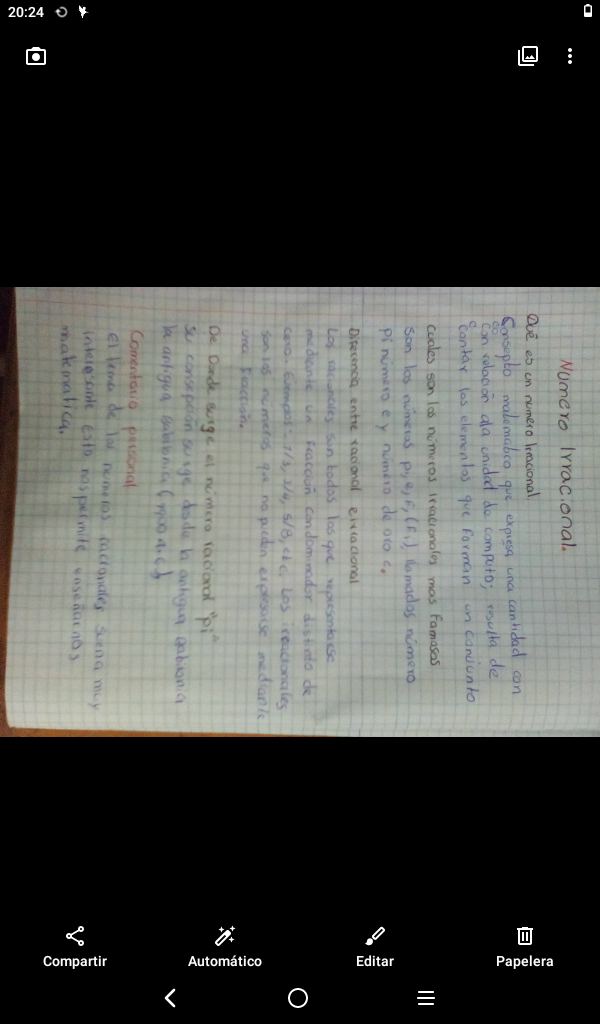 20:24
Numero Irracional.
Qué es un numero Irracional
Concepto matematico que expresa una cantidad con
con relación ala unidad de computo; resulta de
contar los elementos que forman un conjunto
cuales son los números irracionales mas famosos
son los números pi, e, f, (fi), llamados número
pi número e y número de oro c.
entre racional e irracional
Los racionales son todos los que
mediante un fracción condominador distinto de
cero. 1/3, 3/4, 5/8, etc. Los irracionales
son los números que no pueden expresarse mediante
una fracción.
De Donde surge el número racional "pi"
su surge desde la antigua
la antigua
Comentario personal
el tema de los numeros racionales suena muy
esto nos permite enseñarnos
matematica.
Compartir
Automático
Editar
Papelera